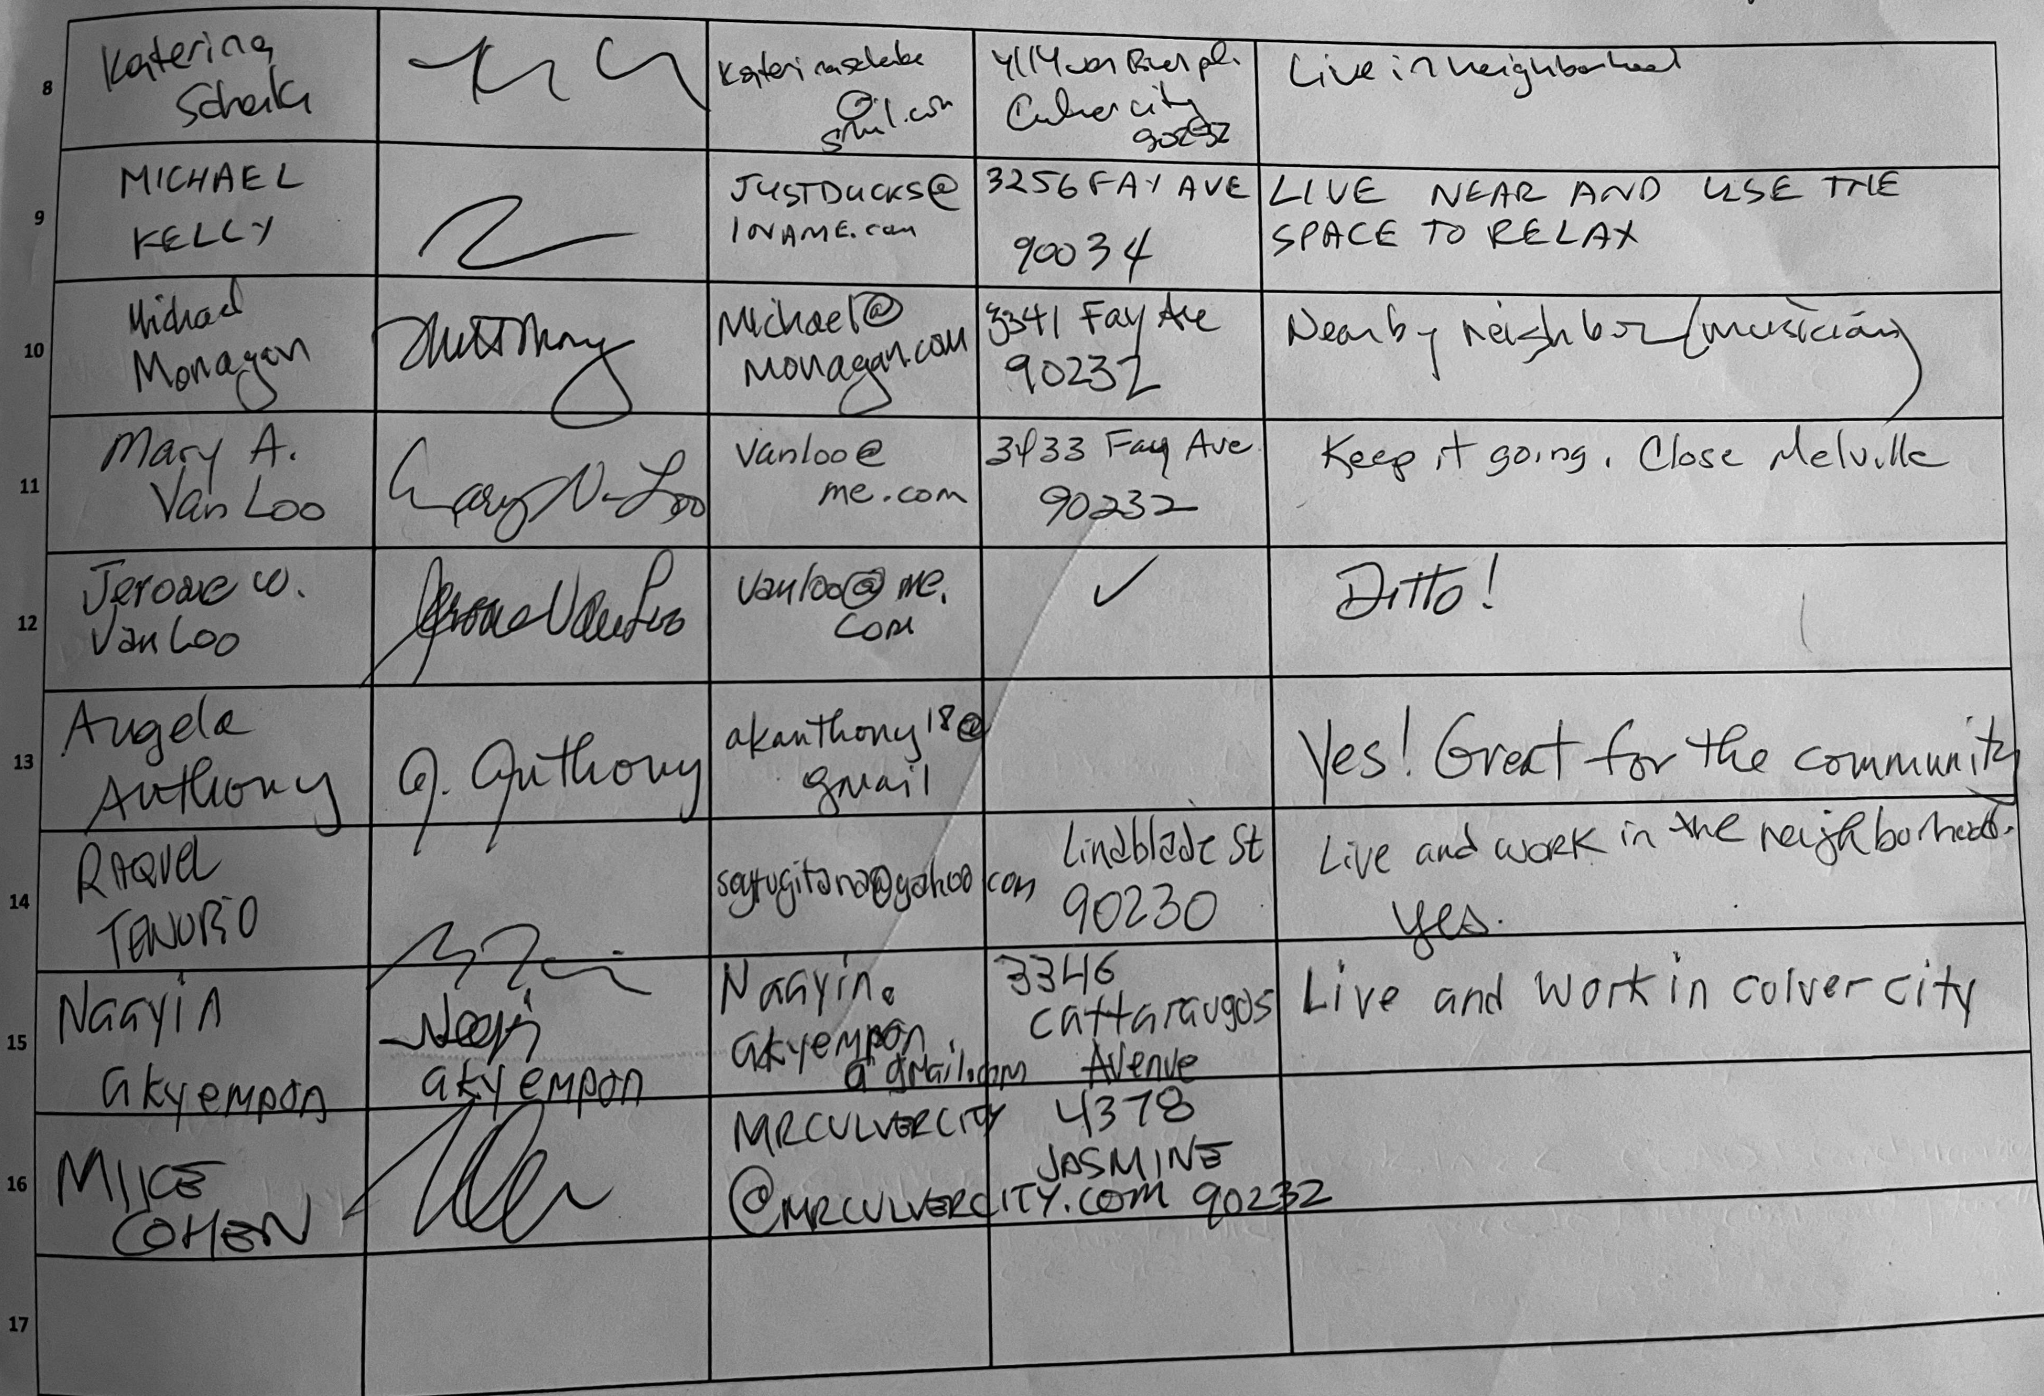 8
Katerina
Live in neighborhood
Culver city
90232
9
MICHAEL
KELLY
JUSTDUCKS@
INAME.com
3256 FAY AVE
90034
LIVE NEAR AND USE THE
SPACE TO RELAX
10
Michael
Monagan
Michael@
Monagan.com
3341 Fay Ave
90232
Nearby neighbor (musician)
11
Mary A.
Van Loo
Vanloo@
me.com
3433 Fay Ave
90232
Keep it going. Close Melville
12
Jerome W.
Van Loo
Jerome Van Loo
Vanloo@me.
com
✓
Ditto!
13
Angela
Anthony
A. Anthony
akanthony18@
gmail
Yes! Great for the community
14
RAQUEL
TENORIO
soytugitana@yahoo.com
Lindblade St
90230
Live and work in the neighborhood.
yes.
15
Naayin
akyempon
akyempon
Naayin.
akyempon
@gmail.com
3346
Cattaraugos
Avenue
Live and work in culver city
16
MIKE
COHEN
MRCULVERCITY
@MRCULVERCITY.COM
4378
JASMINE
90232
17